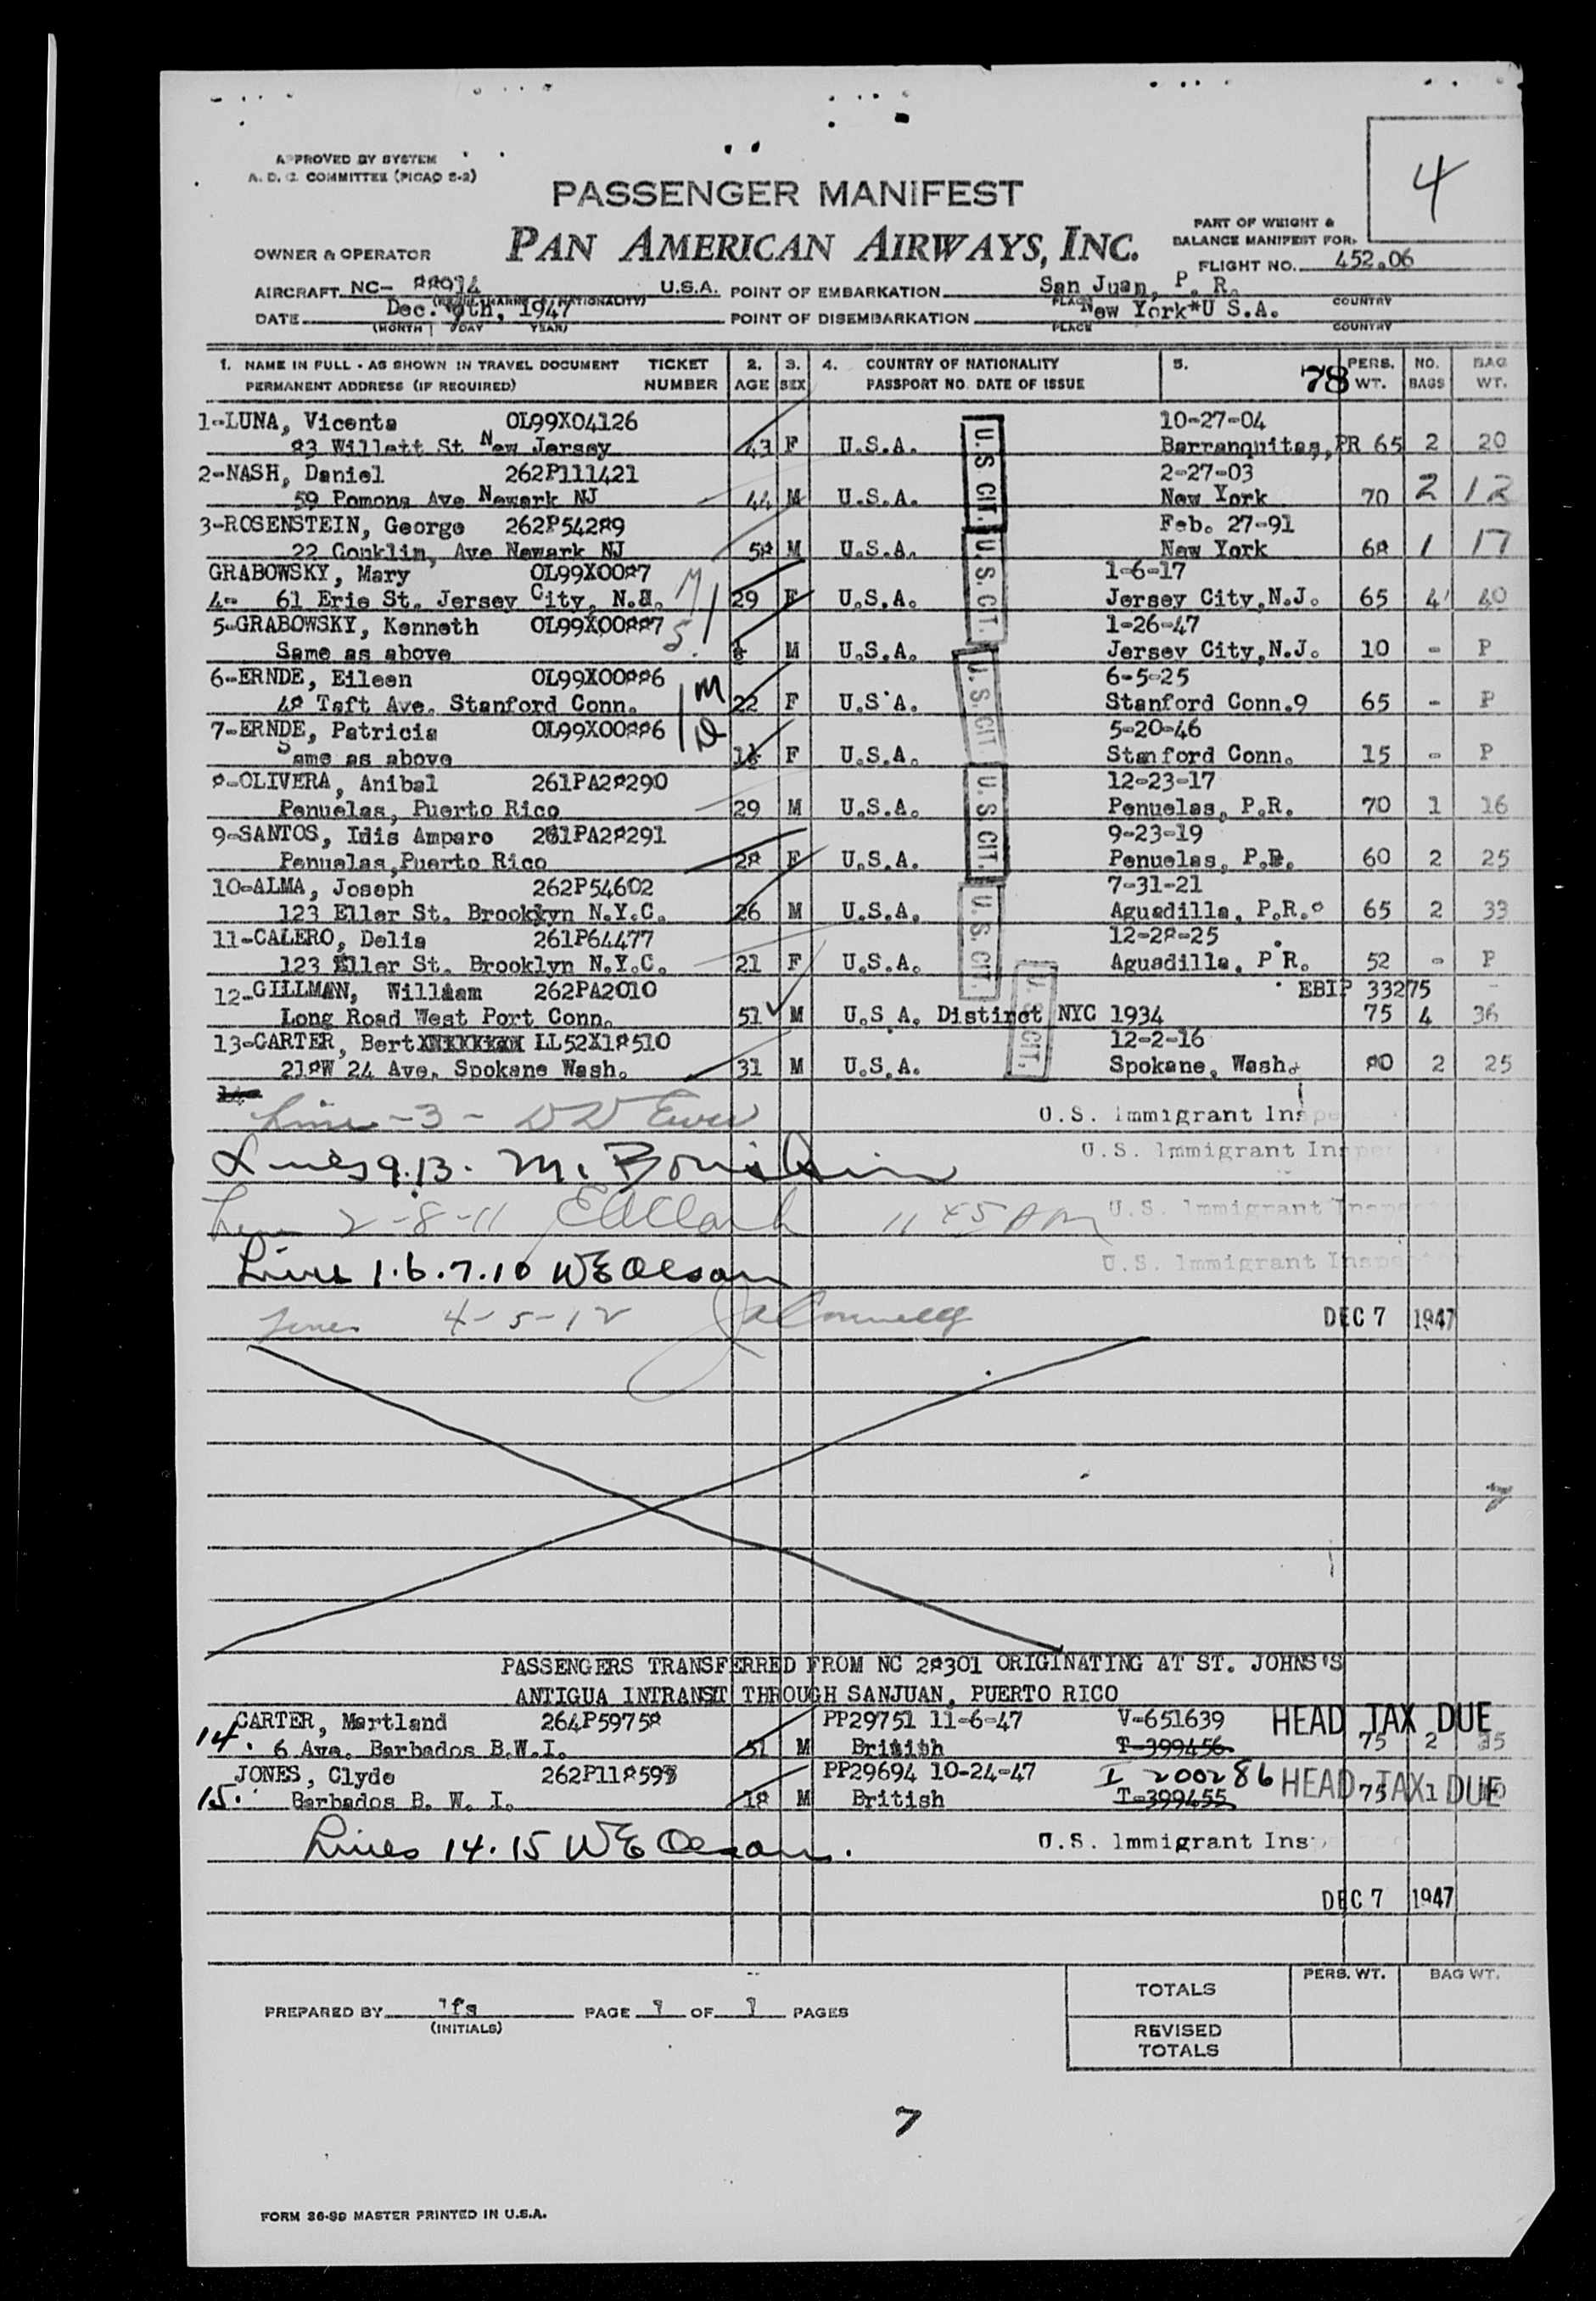 APPROVED BY SYSTEM
A. D. C. COMMITTEE (PICAO S-2)
4
PASSENGER MANIFEST
PAN AMERICAN AIRWAYS, INC.
OWNER & OPERATOR
PART OF WEIGHT &
BALANCE MANIFEST FOR:
FLIGHT NO. 452.06
AIRCRAFT NC- 88914 U.S.A. POINT OF EMBARKATION San Juan, P. R.
DATE Dec. 7th, 1947 POINT OF DISEMBARKATION New York*U S.A.
(MONTH) (DAY YEAR) PLACE COUNTRY
1. NAME IN FULL - AS SHOWN IN TRAVEL DOCUMENT TICKET 2. 3. 4. COUNTRY OF NATIONALITY 5. PERS. NO. BAG
PERMANENT ADDRESS (IF REQUIRED) NUMBER AGE SEX PASSPORT NO. DATE OF ISSUE 78 WT. BAGS WT.
1-LUNA, Vicenta OL99X04126 10-27-04
83 Willett St New Jersey 43 F U.S.A. Barranquitas, PR 65 2 20
2-NASH, Daniel 262P111421 2-27-03
59 Pomona Ave Newark NJ 44 M U.S.A. New York 70 2 12
3-ROSENSTEIN, George 262P54289 Feb. 27-91
22 Conklin, Ave Newark NJ 58 M U.S.A. New York 68 1 17
GRABOWSKY, Mary OL99X0087 1-6-17
4- 61 Erie St. Jersey City, N.J. 29 F U.S.A. Jersey City,N.J. 65 4 40
5-GRABOWSKY, Kenneth OL99X00887 1-26-47
Same as above M U.S.A. Jersey City,N.J. 10 - P
6-ERNDE, Eileen OL99X00886 6-5-25
48 Taft Ave. Stanford Conn. 22 F U.S.A. Stanford Conn.9 65 - P
7-ERNDE, Patricia OL99X00886 5-20-46
Same as above F U.S.A. Stanford Conn. 15 - P
8-OLIVERA, Anibal 261PA28290 12-23-17
Penuelas, Puerto Rico 29 M U.S.A. Penuelas, P.R. 70 1 16
9-SANTOS, Idis Amparo 261PA28291 9-23-19
Penuelas,Puerto Rico 28 F U.S.A. Penuelas, P.R. 60 2 25
10-ALMA, Joseph 262P54602 7-31-21
123 Eller St. Brooklyn N.Y.C. 26 M U.S.A. Aguadilla, P.R. 65 2 33
11-CALERO, Delia 261P64477 12-28-25
123 Eller St. Brooklyn N.Y.C. 21 F U.S.A. Aguadilla, P R. 52 - P
12-GILLMAN, William 262PA2010 EBIP 33275
Long Road West Port Conn. 51 M U.S A. Distinct NYC 1934 75 4 36
13-CARTER, Bert LL52X18510 12-2-16
218W 24 Ave. Spokane Wash. 31 M U.S.A. Spokane, Wash. 80 2 25
U.S. CIT.
U.S. CIT.
U.S. CIT.
U.S. CIT.
U.S. CIT.
U.S. CIT.
Line - 3 - U.S. Immigrant Inspe
Lines 9.13. M. U.S. Immigrant Inspe
Line 2-8-11 EA Clark 11 45 AM U.S. Immigrant Inspe
Lines 1.6.7.10 WE Olson U.S. Immigrant Inspe
Lines 4-5-12 JA Connelly DEC 7 1947
PASSENGERS TRANSFERRED FROM NC 28301 ORIGINATING AT ST. JOHNS'S
ANTIGUA INTRANSIT THROUGH SANJUAN, PUERTO RICO
CARTER, Martland 264P59758 PP29751 11-6-47 V-651639 HEAD TAX DUE
14. 6 Ave. Barbados B.W.I. 51 M British T-399456 75 2 35
JONES, Clyde 262P118598 PP29694 10-24-47 I 200286 HEAD TAX DUE
15. Barbados B. W. I. 18 M British T-399455 75 1
Lines 14.15 WE Olson. U.S. Immigrant Ins
DEC 7 1947
PERS. WT. BAG WT.
TOTALS
PREPARED BY jfs PAGE 1 OF 1 PAGES
(INITIALS)
REVISED
TOTALS
7
FORM 36-99 MASTER PRINTED IN U.S.A.